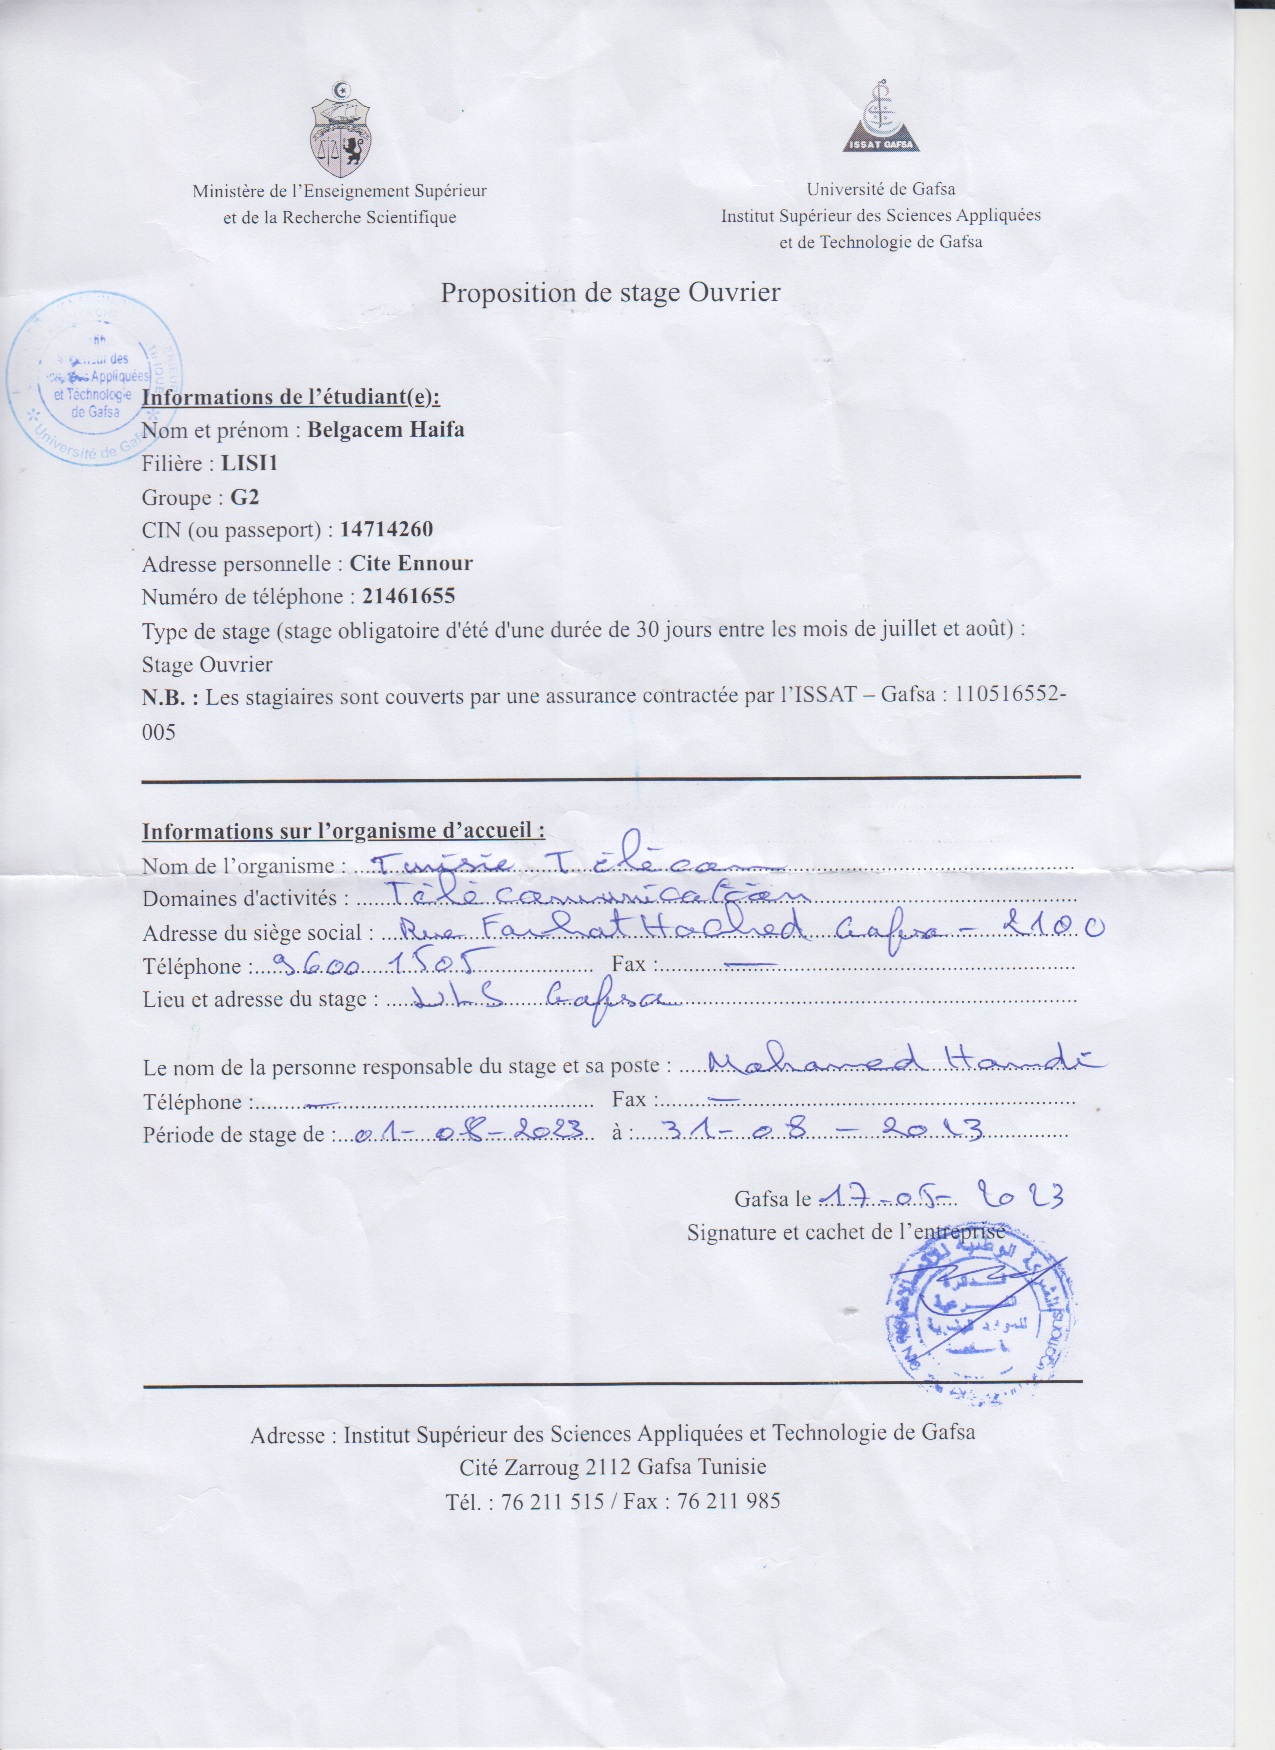 ISSAT GAFSA
Ministère de l'Enseignement Supérieur
et de la Recherche Scientifique
Université de Gafsa
Institut Supérieur des Sciences Appliquées
et de Technologie de Gafsa
Proposition de stage Ouvrier
des
Appliquées
et Technologie
de Gafsa
Université de Gafsa
Informations de l'étudiant(e):
Nom et prénom : Belgacem Haifa
Filière : LISI1
Groupe : G2
CIN (ou passeport) : 14714260
Adresse personnelle : Cite Ennour
Numéro de téléphone : 21461655
Type de stage (stage obligatoire d'été d'une durée de 30 jours entre les mois de juillet et août) :
Stage Ouvrier
N.B. : Les stagiaires sont couverts par une assurance contractée par l'ISSAT – Gafsa : 110516552-
005
Informations sur l'organisme d'accueil :
Nom de l'organisme : Tunisie Télécom
Domaines d'activités : Télécommunication
Adresse du siège social : Rue Farhat Hached Gafsa - 2100
Téléphone : 9600 1505 Fax : —
Lieu et adresse du stage : Gafsa
Le nom de la personne responsable du stage et sa poste : Mohamed Hamdi
Téléphone : — Fax : —
Période de stage de : 01-08-2023 à : 31-08-2023
Gafsa le 17-05-2023
Signature et cachet de l'entreprise
الشركة الوطنية
Adresse : Institut Supérieur des Sciences Appliquées et Technologie de Gafsa
Cité Zarroug 2112 Gafsa Tunisie
Tél. : 76 211 515 / Fax : 76 211 985